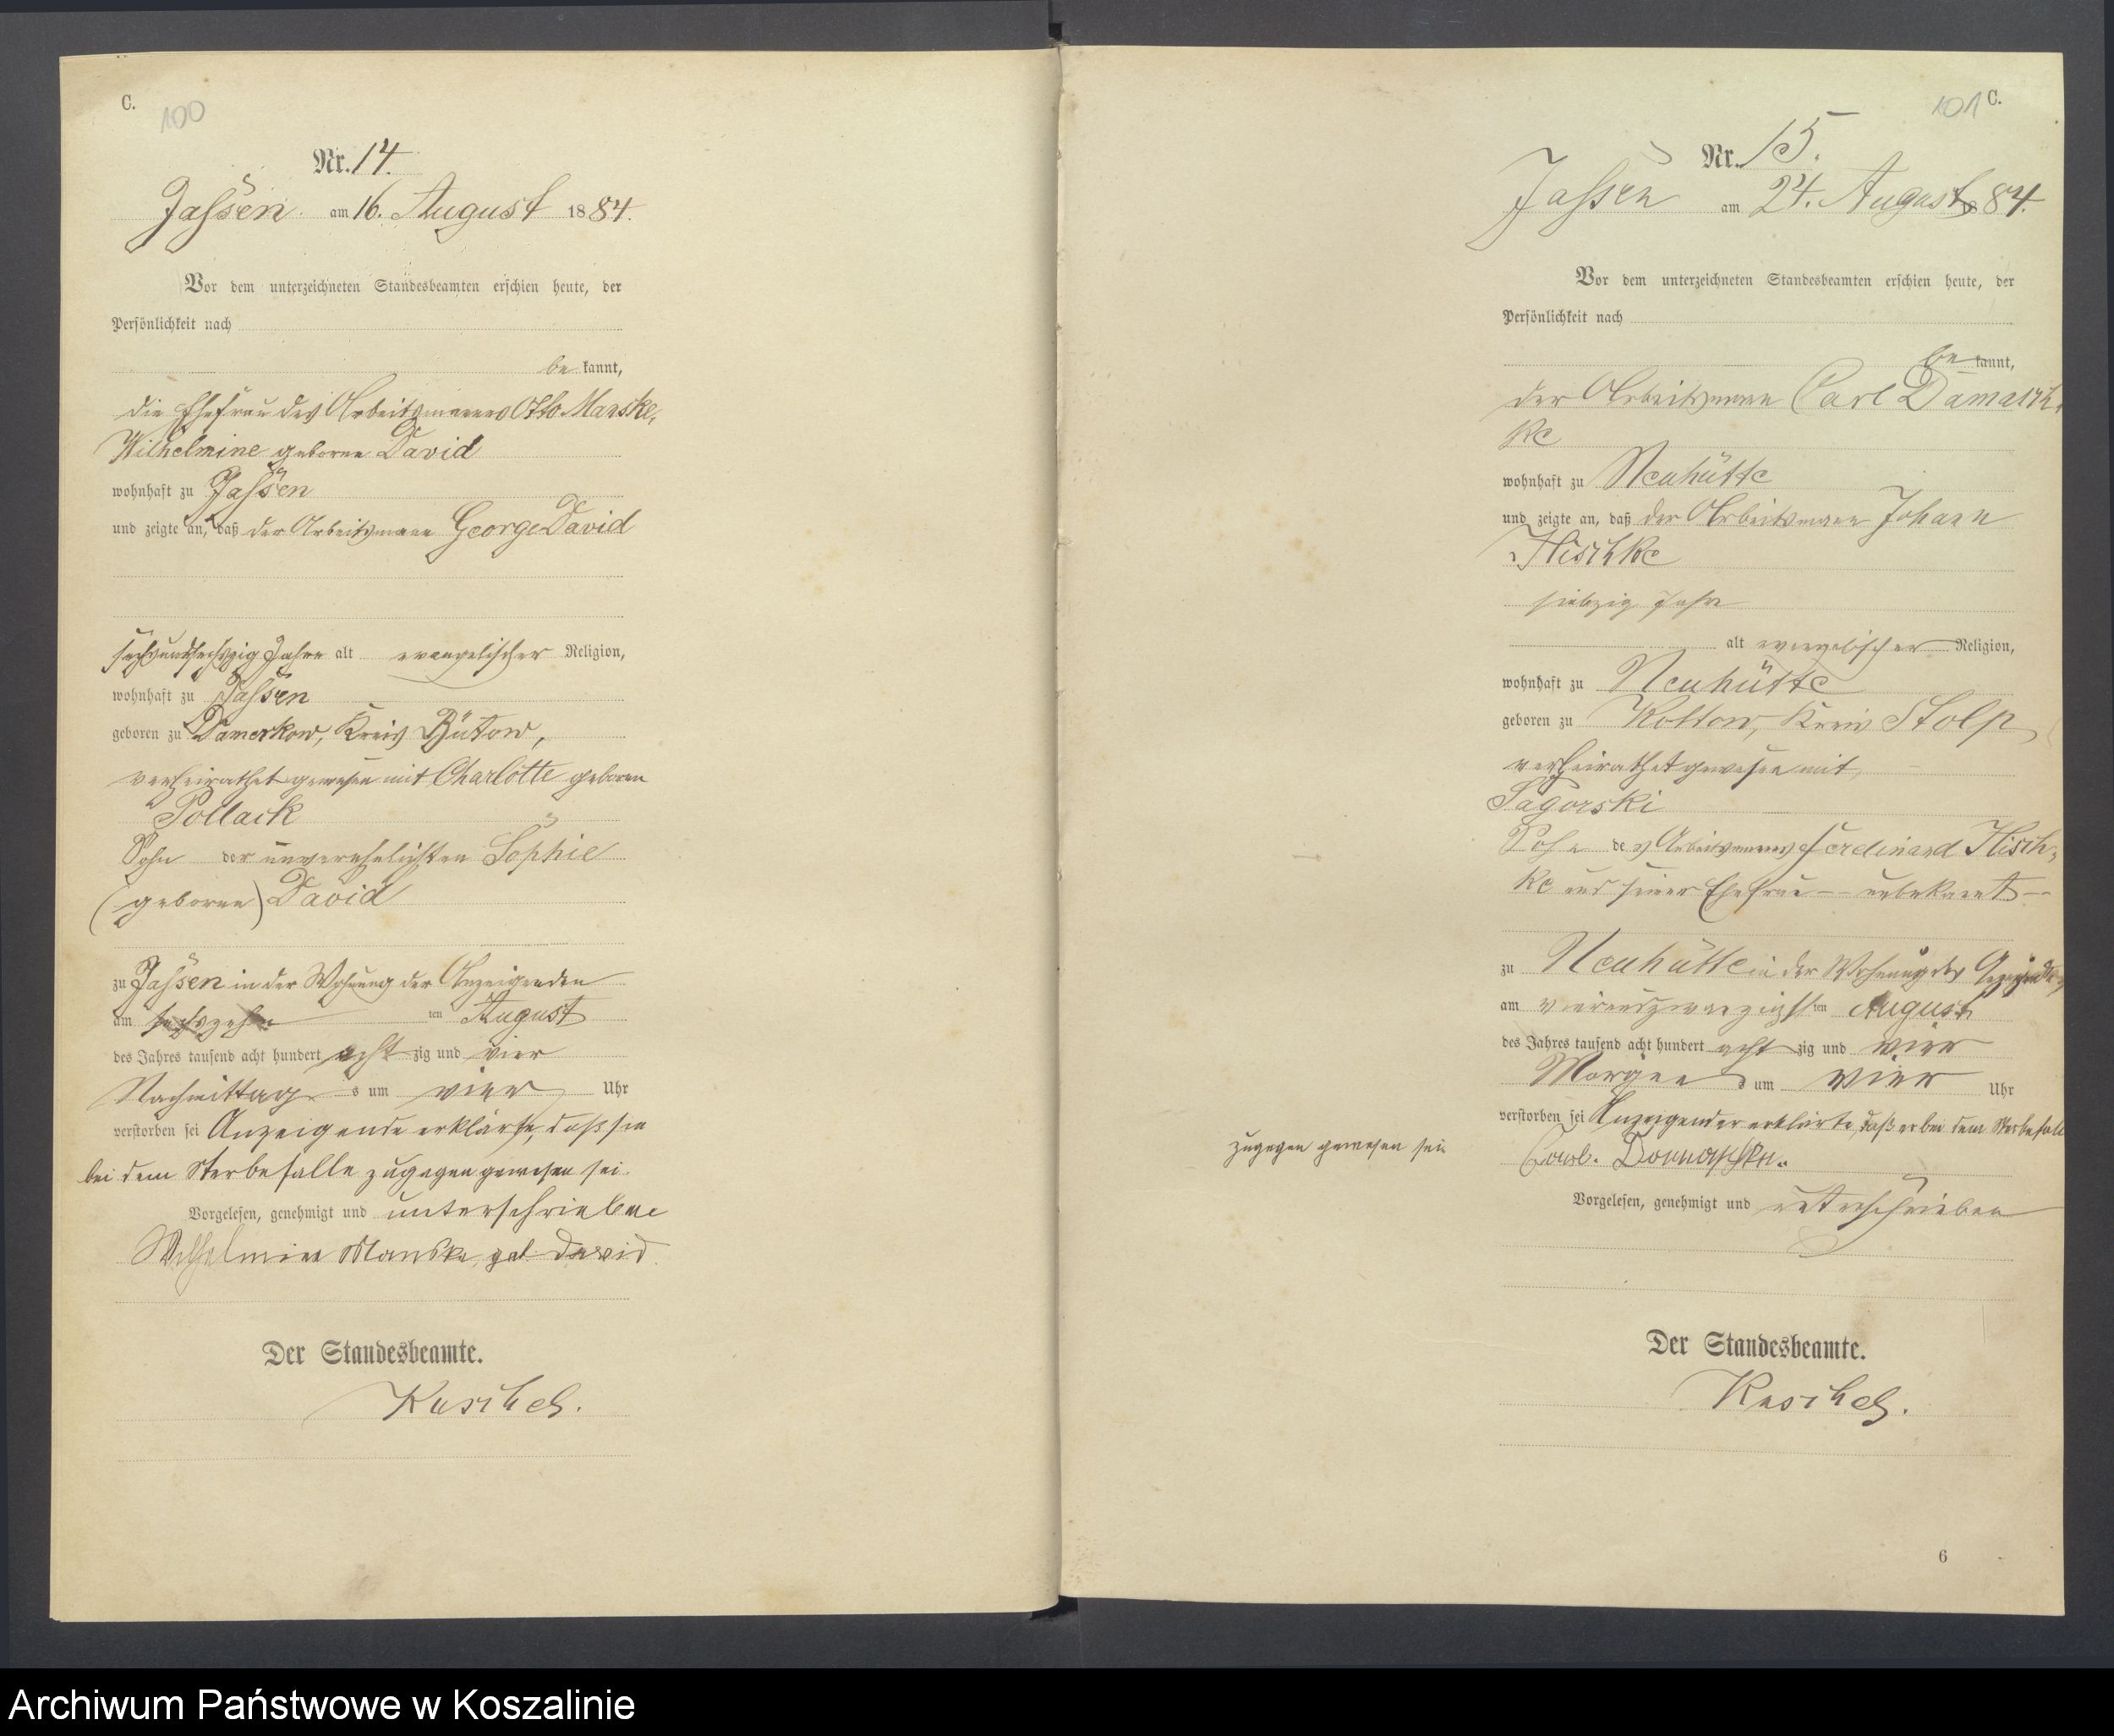 C.
100
Nr. 14.
Jassen am 16. August 1884.
Vor dem unterzeichneten Standesbeamten erschien heute, der
Persönlichkeit nach
be kannt,
die Ehefrau des Arbeitsmannes Otto Manske,
Wilhelmine geborne David
wohnhaft zu Jassen
und zeigte an, daß der Arbeitsmann George David
sechsundsechszig Jahre alt evangelischer Religion,
wohnhaft zu Jassen
geboren zu Damerkow, Kreis Bütow,
verheirathet gewesen mit Charlotte geboren
Pollack
Sohn der unverehelichten Sophie
(geborne) David
zu Jassen in der Wohnung der Anzeigenden
am sechszehn ten August
des Jahres tausend acht hundert acht zig und vier
Nachmittag s um vier Uhr
verstorben sei Anzeigende erklärte, daß sie
bei dem Sterbefalle zugegen gewesen sei.
Vorgelesen, genehmigt und unterschrieben
Wilhelmine Manske geb. David
Der Standesbeamte.
Kuschel.
101 C.
Nr. 15.
Jassen am 24. August 1884.
Vor dem unterzeichneten Standesbeamten erschien heute, der
Persönlichkeit nach
be kannt,
der Arbeitsmann Carl Damasch-
ke
wohnhaft zu Neuhütte
und zeigte an, daß der Arbeitsmann Johann
Hischke
siebzig Jahre
alt evangelischer Religion,
wohnhaft zu Neuhütte
geboren zu Kottow, Kreis Stolp
verheirathet gewesen mit
Sagorski
Sohn des Arbeitsmannes Ferdinand Hisch-
ke und seiner Ehefrau — unbekannt —
zu Neuhütte in der Wohnung des Anzeigenden
am vierundzwanzigsten ten August
des Jahres tausend acht hundert acht zig und vier
Morgen s um vier Uhr
verstorben sei Anzeigender erklärte, daß er bei dem Sterbefall
zugegen gewesen sei
Carl. Domaschke.
Vorgelesen, genehmigt und unterschrieben
Der Standesbeamte.
Kuschel.
6
Archiwum Państwowe w Koszalinie